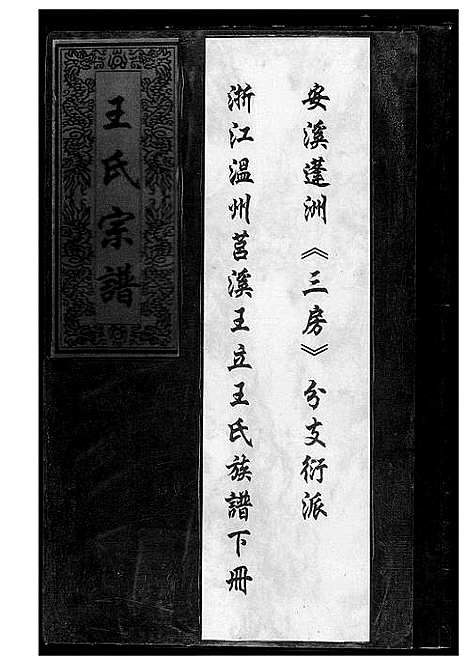 安溪蓬洲《三房》分支衍派
浙江温州莒溪王立王氏族譜下册
王氏宗譜